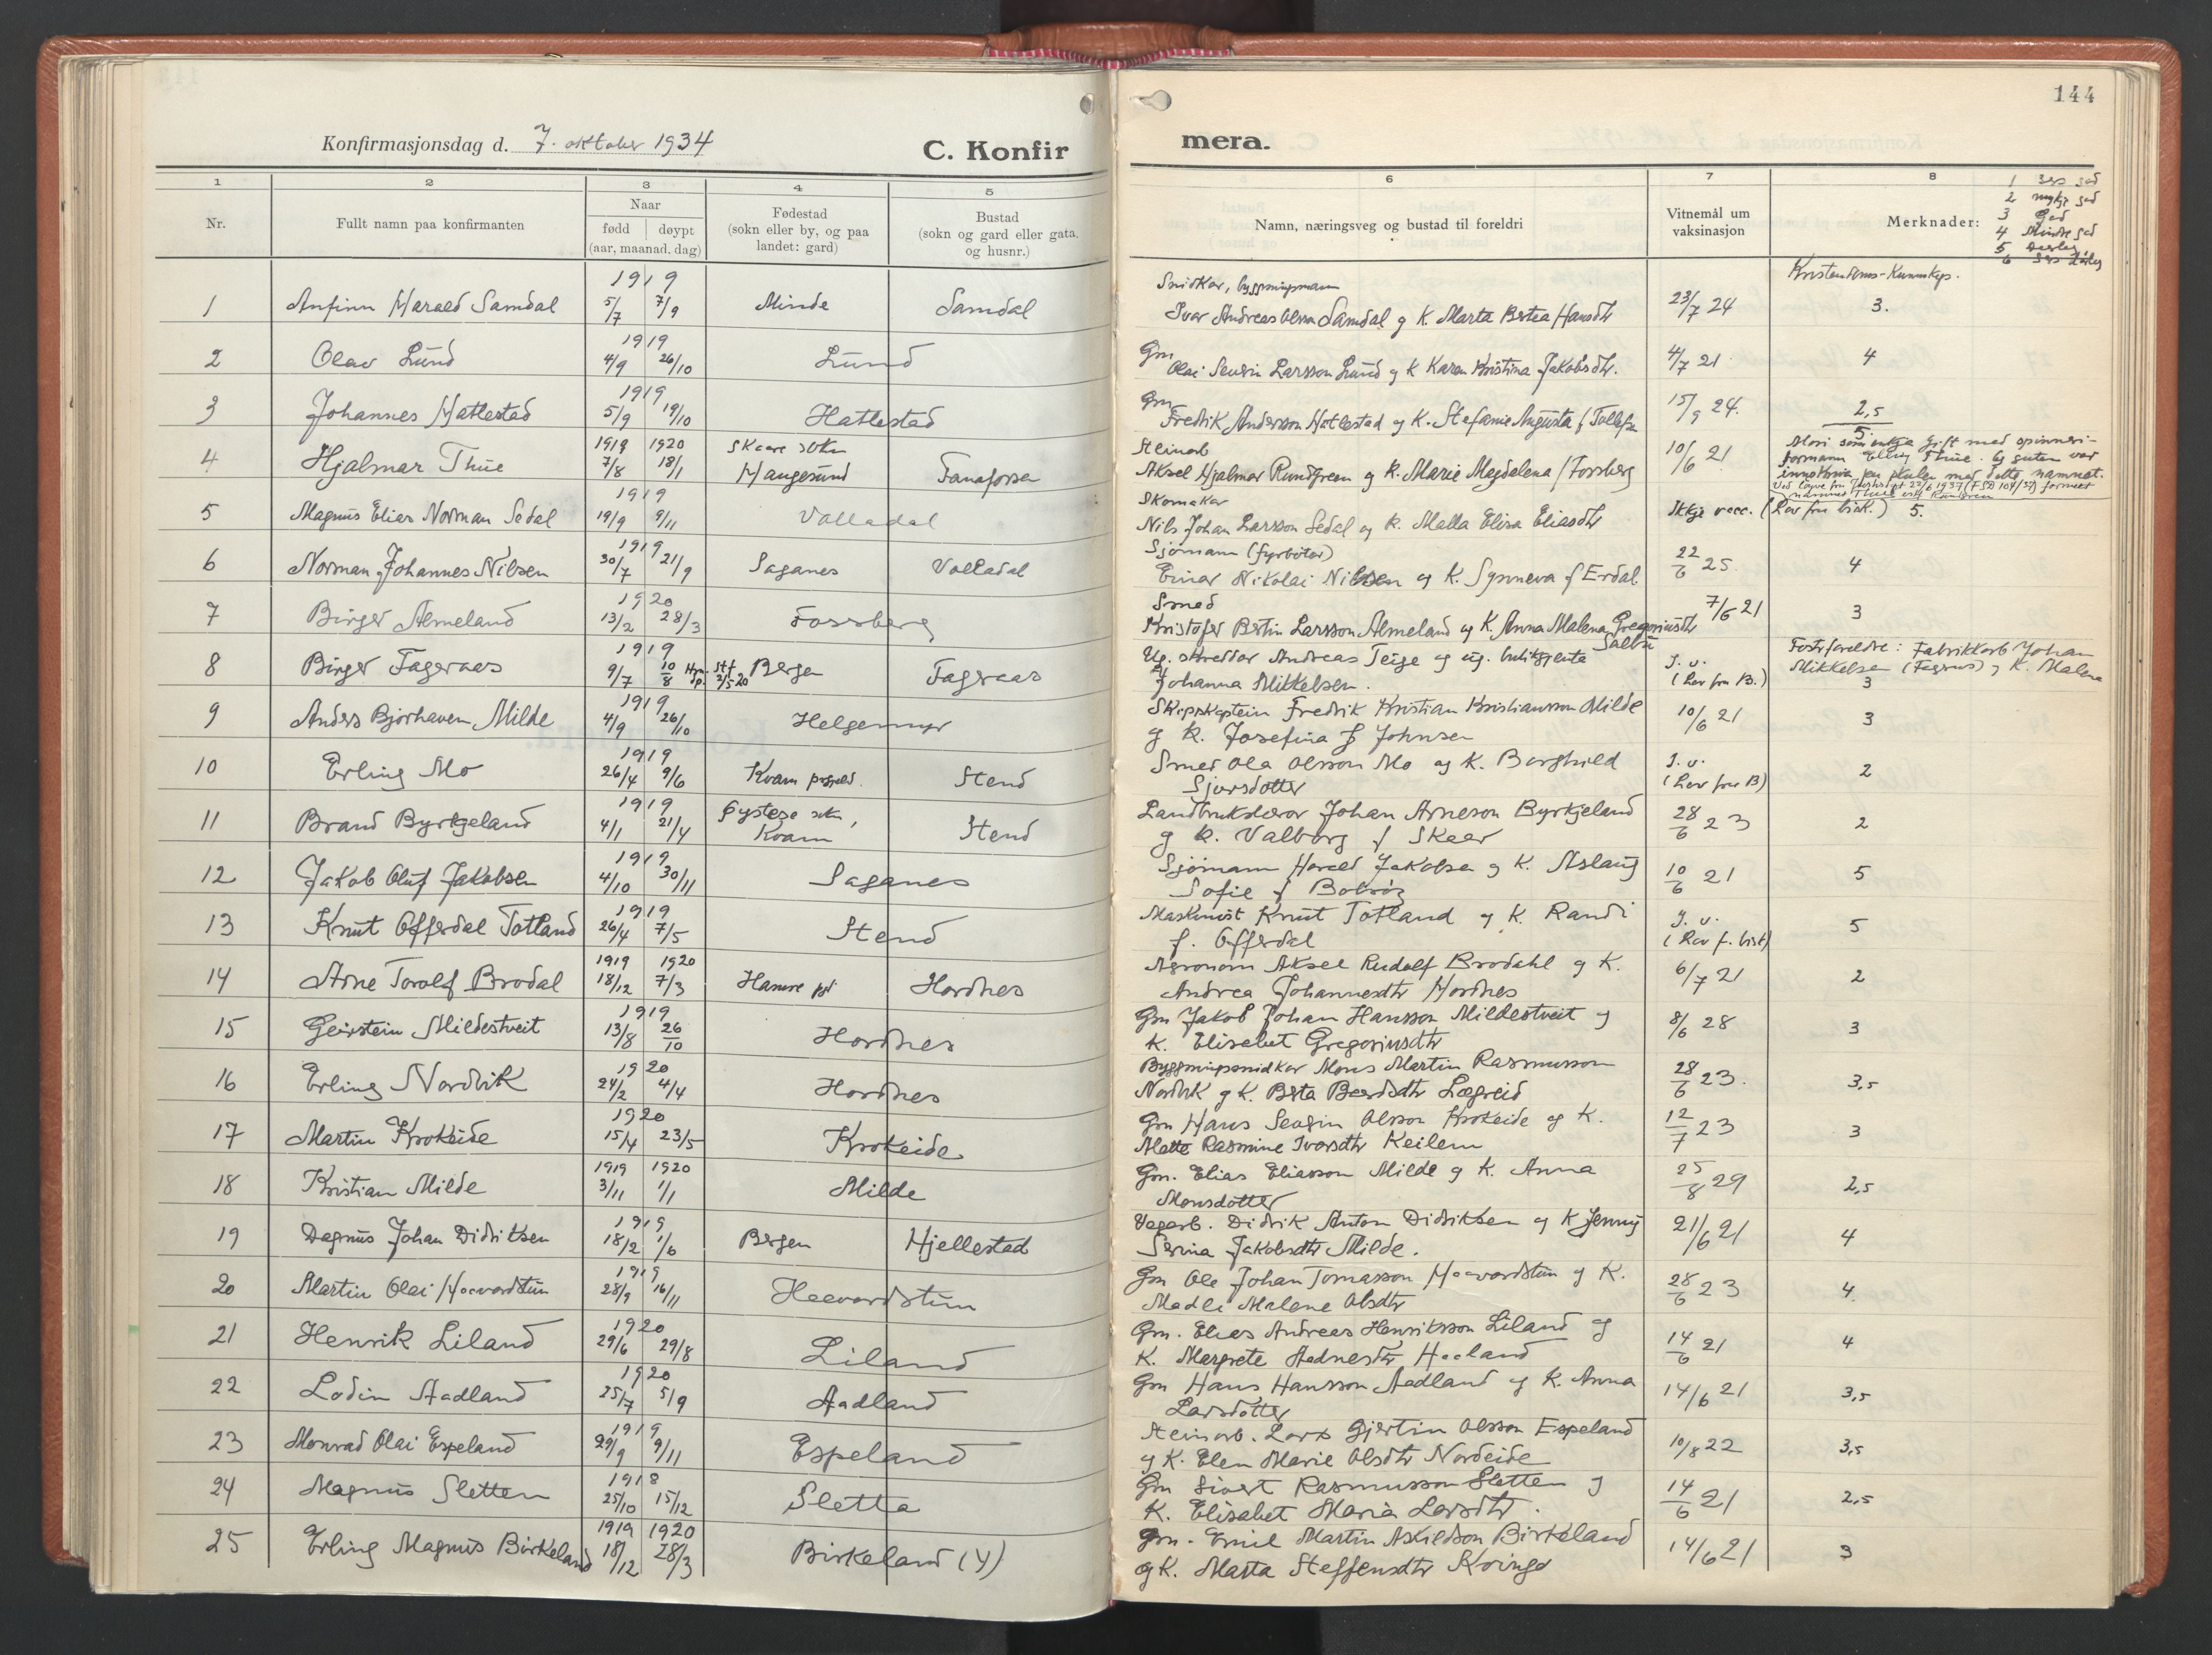 144
Konfirmasjonsdag d. 7. oktober 1934
C. Konfirmera.
1 2 3 4 5 6 7 8
Nr.
Fullt namn paa konfirmanten
Naar
fødd døypt
(aar, maanad, dag)
Fødestad
(sokn eller by, og paa
landet: gard)
Bustad
(sokn og gard eller gata
og husnr.)
Namn, næringsveg og bustad til foreldri
Vitnemål um
vaksinasjon
Merknader:
1 sers god
2 mykje god
3 God
4 Mindre god
5 Daarleg
6 sers dårleg
Kristendoms-Kunnskap.
1919
Snidkar, byggningsmann
1 Anfinn Harald Samdal 5/7 7/9 Minde Samdal Ivar Andreas Olsson Samdal og K. Marta Bertea Hansdtr 23/7 24 3.
1919
2 Olav Lund 4/9 26/10 Lund Gm Olai Severin Larsson Lund og K Karen Kristina Jakobsdtr. 4/7 21 4
1919
3 Johannes Hatlestad 5/9 19/10 Hatlestad Gm Fredrik Andersson Hatlestad og K. Stefanie Augusta f Tollefsen 15/9 24. 2,5
1919 1920 Skaare sokn Steinarb
4 Hjalmar Thue 7/8 18/1 Haugesund Fanaforsen Aksel Hjalmar Rundgreen og K. Marie Magdelena f Forsberg 10/6 21 5
Mori som enkja gift med spinneri-
formann Elling Thue. Og guten var
innskriven paa skulen med dette namnet.
1919 Skomakar
5 Magnus Elias Norman Sedal 19/9 9/11 Valladal Nils Johan Larsson Sedal og K. Malla Elisa Eliasdtr Ikkje vacc. (Lov fra bisk.) 5.
1919 Sjømann (fyrbøter)
6 Norman Johannes Nilsen 30/7 21/9 Saganes Valladal Einar Nikolai Nilsen og K. Synneva f Erdal 22/6 25. 4
1920 Smed
7 Birger Almeland 13/2 28/3 Fossberg Kristofer Bertin Larsson Almeland og K. Anna Malena Gregoriusdtr Salbu 7/6 21 3
1919
8 Birger Fageraas 9/7 10/8 Bergen Fageraas Ug. skreddar Andreas Teige og ug. butikgjenta
Johanna Mikkelsen. I. v. (Lov fra B.)
Fosterforeldre: Fabrikkarb Johan
Mikkelsen (Fageraas) og K. Malena
3
1919
9 Anders Bjørhaven Milde 4/9 26/10 Helgemyr Skipskaptein Fredrik Kristian Kristiansson Milde
og K. Josefina f Johnsen 10/6 21 3
1919
10 Erling Mo 26/4 9/6 Kvam prgjeld. Stend Smed Ola Olsson Mo og K. Borghild
Sjursdotter I. v. (Lov fra B) 2
1919
11 Brand Byrkjeland 4/1 21/4 Øystese sokn, Kvam Stend Landbrukslærar Johan Arneson Byrkjeland
og K. Valborg f Skaar 28/6 23 2
1919
12 Jakob Oluf Jakobsen 4/10 30/11 Saganes Sjømann Harald Jakobsen og K. Aslaug
Sofie f Bolsøy 10/6 21 5
1919
13 Knut Offerdal Totland 26/4 7/5 Stend Maskinist Knut Totland og K. Randi
f. Offerdal I. v. (Lov f. bisk) 5
1919 1920
14 Arne Torolf Brodal 18/12 7/3 Hamre pgj Hordnes Agronom Aksel Rudolf Brodahl og K.
Andrea Johannesdtr Hordnes 6/7 21 2
1919
15 Geirstein Mildestveit 13/8 26/10 Hordnes Gm Jakob Johan Hansson Mildestveit og
K. Elisabet Gregoriusdtr 8/6 28 3
1920
16 Erling Nordvik 24/2 4/4 Hordnes Byggningssnidkar Mons Martin Rasmusson
Nordvik og K. Berta Baardsdtr Lægreid 28/6 23. 3,5
1920
17 Martin Krokeide 15/4 23/5 Krokeide Gm Hans Severin Olsson Krokeide og K.
Mette Rasmine Ivarsdtr Keilen 12/7 23 3
1919 1920
18 Kristian Milde 3/11 1/1 Milde Gm. Elias Eliasson Milde og K. Anna
Monsdotter 25/8 29 2,5
1919
19 Dagmus Johan Didriksen 18/2 1/6 Bergen Hjellestad Vegarb. Didrik Anton Didriksen og K Jenny
Serina Jakobsdtr Milde. 21/6 21 4
1919
20 Martin Olai Haavardstun 28/9 16/11 Haavardstun Gm Ole Johan Tomasson Haavardstun og K.
Madli Malene Olsdtr 28/6 23 4.
1920
21 Henrik Liland 29/6 29/8 Liland Gm. Elias Andreas Henriksson Liland og
K. Margrete Aadnesdtr Haaland 14/6 21 4
1920
22 Lodin Aadland 25/7 5/9 Aadland Gm Hans Hansson Aadland og K. Anna
Larsdotter 14/6 21 3,5
1919
23 Monrad Olai Espeland 29/9 9/11 Espeland Steinarb. Lars Gjertin Olsson Espeland
og K. Elen Marie Olsdtr Nordeide 10/8 22 3,5
1918
24 Magnus Sletten 25/10 15/12 Sletta Gm Sivert Rasmusson Sletten og
K. Elisabet Maria Larsdtr. 14/6 21 2,5
1919 1920
25 Erling Magnus Birkeland 18/12 28/3 Birkeland (Y) Gm. Emil Martin Askildson Birkeland
og K. Marta Steffensdtr Kvinge 14/6 21 3